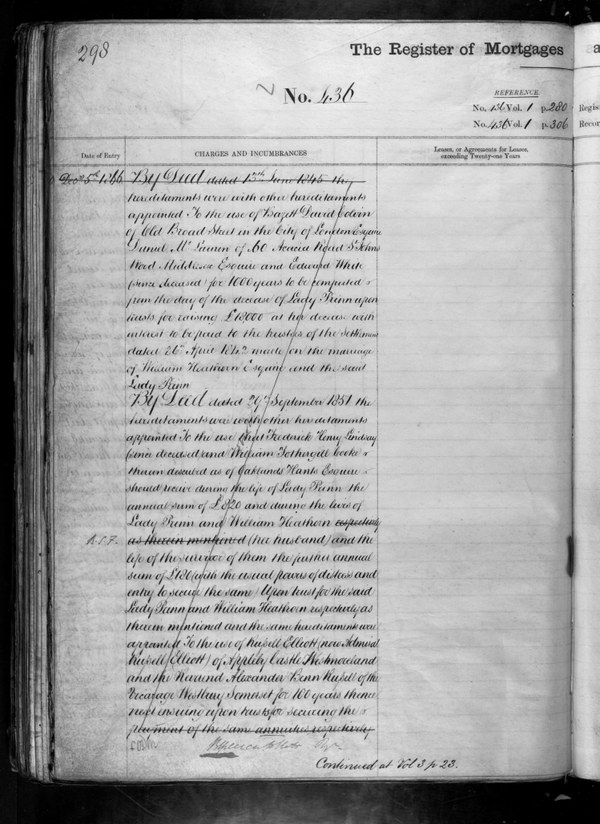 298
The Register of Mortgages
a
No. 436
REFERENCE.
No. 436 Vol. 1 p. 280
Regis
No. 436 Vol. 1 p. 306
Recor
Date of Entry
CHARGES AND INCUMBRANCES
Leases, or Agreements for Leases,
exceeding Twenty-one Years
Decr 5th 1866
By Deed dated 13th June 1845 the
hereditaments were with other hereditaments
appointed To the use of David
of Old Broad Street in the City of London Esquire
Daniel of 60 Acacia Road St Johns
Wood Middlesex Esquire and Edward White
(since deceased) for 1000 years to be computed
from the day of the decease of Lady Prinn upon
trusts for raising £12000 at her decease with
interest to be paid to the trustees of the Settlement
dated 26th April 1842 made on the marriage
of William Heathorn Esquire and the said
Lady Prinn
By Deed dated 29th September 1851 the
hereditaments were with other hereditaments
appointed To the use that Frederick Henry Lindsay
(since deceased) and William Fothergill Cooke
therein described as of Oaklands Hants Esquire
should receive during the life of Lady Prinn the
annual sum of £820 and during the lives of
Lady Prinn and William Heathorn respectively
as therein mentioned (her husband) and the
life of the survivor of them the further annual
sum of with the usual powers of distress and
entry to secure the same) Upon trust for the said
Lady Prinn and William Heathorn respectively as
therein mentioned and the same hereditaments were
appointed To the use of Russell Elliott (now Admiral
Russell Elliott) of Appleby Castle Westmoreland
and the Reverend Alexander Benn Russell of the
Vicarage Westbury Somerset for 100 years thence
next ensuing upon trusts for securing the
payment of the same annuities respectively
Continued at Vol 3 p 23.